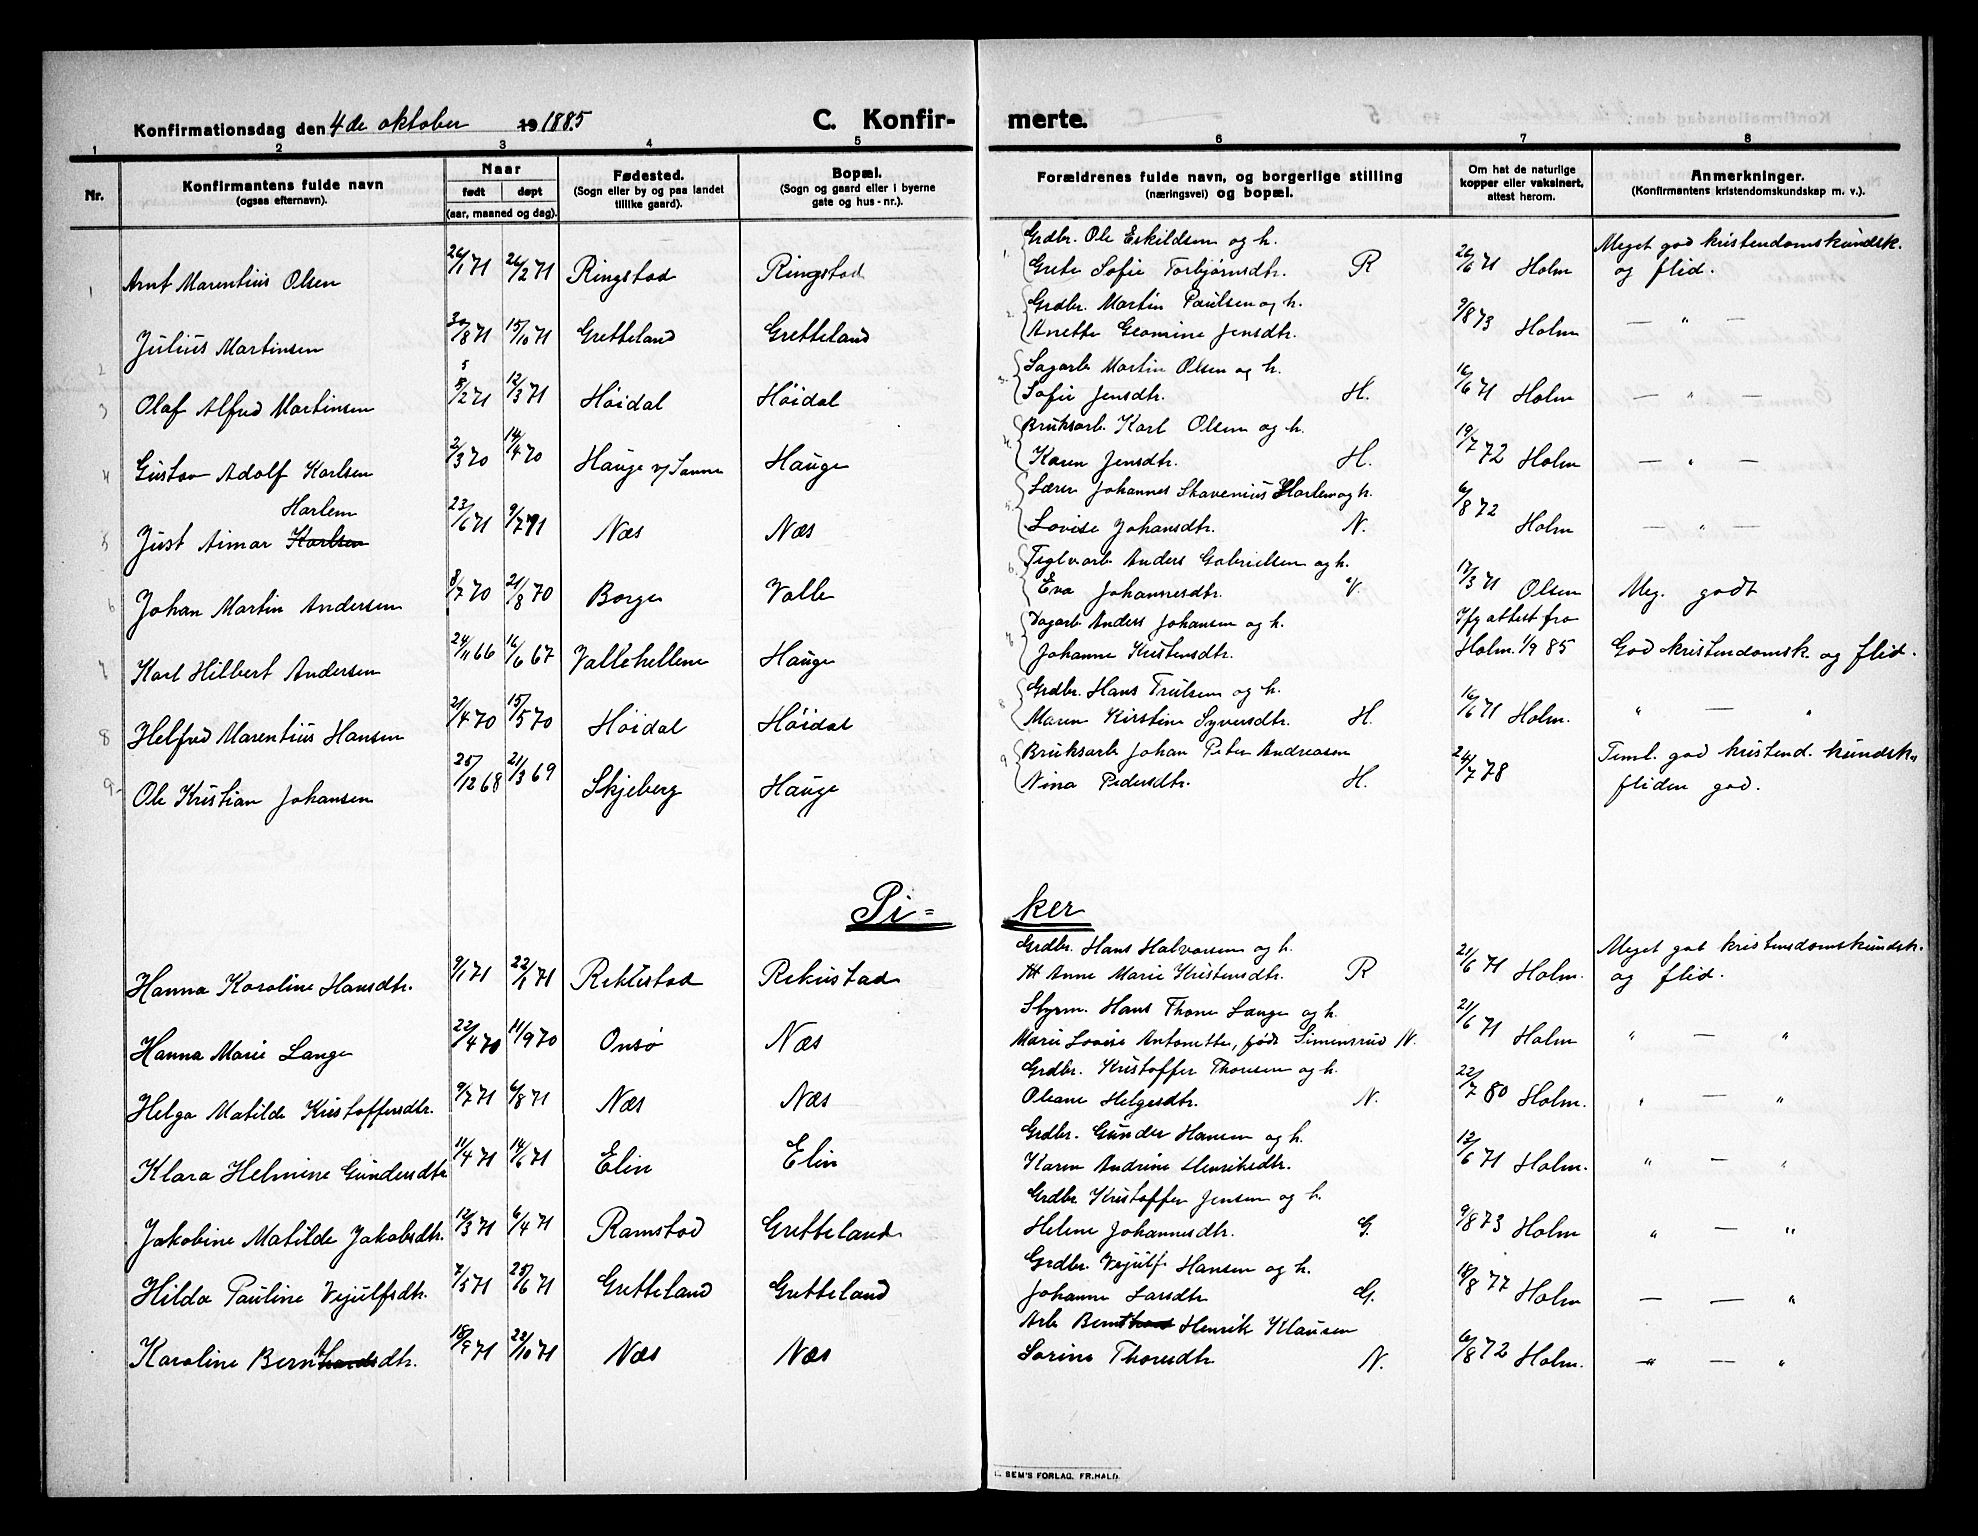 Konfirmationsdag den 4de oktober 19 1885 C. Konfirmerte.
1 2 3 4 5 6 7 8
Nr.
Konfirmantens fulde navn
(ogsaa efternavn).
Naar
født døpt
(aar, maaned og dag).
Fødested.
(Sogn eller by og paa landet
tillike gaard).
Bopæl.
(Sogn og gaard eller i byerne
gate og hus-nr.).
Forældrenes fulde navn, og borgerlige stilling
(næringsvei) og bopæl.
Om hat de naturlige
kopper eller vaksinert,
attest herom.
Anmerkninger.
(Konfirmantens kristendomskundskap m. v.).
1. Grdbr. Ole Eskildsen og h. Meget god kristendomskundsk.
1 Arnt Marentius Olsen 26/1 71 26/2 71 Ringstad Ringstad Grete Sofie Torbjørnsdtr. R 26/6 71 Holm og flid.
2. Grdbr. Martin Paulsen og h.
2 Julius Martinsen 30/8 71 15/10 71 Gretteland Gretteland Anette Geomine Jensdtr. 9/8 73 Holm — " —
3. Sagarb. Martin Olsen og h.
3 Olaf Alfred Martinsen 5/2 71 12/3 71 Høidal Høidal Sofie Jensdtr. H. 16/6 71 Holm — " —
4. Bruksarb. Karl Olsen og h.
4 Gustav Adolf Karlsen 2/3 70 14/4 70 Hauge v/ Sanne Hauge Karen Jensdtr. H. 19/7 72 Holm — " —
5. Lærer Johannes Skavenius Harlem og h.
Harlem
5 Just Aimar Karlsen 23/6 71 9/7 71 Næs Næs Lovise Johansdtr. N. 6/8 72 Holm — " —
6. Teglvarb. Anders Gabrielsen og h.
6 Johan Martin Andersen 8/7 70 21/8 70 Borge Valle Eva Johannesdtr. V. 17/3 71 Olsen Meg. godt
7. Dagarb. Anders Johansen og h. Ifg attest fra
7 Karl Hilbert Andersen 24/11 66 16/6 67 Vallehellene Hauge Johanne Kristensdtr. Holm 1/9 85 God kristendomsk. og flid.
8 Grdbr. Hans Trulsen og h.
8 Helfred Marentius Hansen 21/4 70 15/5 70 Høidal Høidal Maren Kirstine Syversdtr. H. 16/6 71 Holm. " — "
9 Bruksarb. Johan Peter Andreasen Teml. god kristend. kundsk.,
9- Ole Kristian Johansen 25/12 68 21/3 69 Skjeberg Hauge Nina Pedersdtr. H. 24/7 78 fliden god.
Pi= ker
Grdbr. Hans Halvorsen og h. Meget god kristensdomskundsk.
Hanna Karoline Hansdtr. 9/1 71 22/1 71 Rekustad Rekustad Anne Marie Kristensdtr. R 21/6 71 Holm. og flid.
Styrm. Hans Thone Lange og h.
Hanna Marie Lange 22/4 70 11/9 70 Onsø Næs Marie Lovise Antonette, født Simensrud N. 21/6 71 Holm " — "
Grdbr. Kristoffer Thoresen og h.
Helga Matilde Kristoffersdtr. 9/7 71 6/8 71 Næs Næs Oleane Helgesdtr. N. 22/7 80 Holm. " — "
Grdbr. Gunder Hansen og h.
Klara Helmine Gundersdtr 11/4 71 14/6 71 Elin Elin Karen Andrine Henriksdtr. 12/6 71 Holm. " — "
Grdbr Kristoffer Jensen og h.
Jakobine Matilde Jakobsdtr. 12/3 71 6/4 71 Ramstad Gretteland Helene Johannesdtr. G. 9/8 73 Holm " — "
Grdbr. Vejulf Hansen og h.
Hilda Pauline Vejulfsdtr. 7/5 71 25/6 71 Gretteland Gretteland Johanne Larsdtr G. 18/8 77 Holm — — "
Arb Bernthard Henrik Klausen
Karoline Bernthardsdtr. 18/9 71 22/10 71 Næs Næs Sorine Thoresdtr N. 6/8 72 Holm. — " — "
SEM'S FORLAG, FR.HALD.